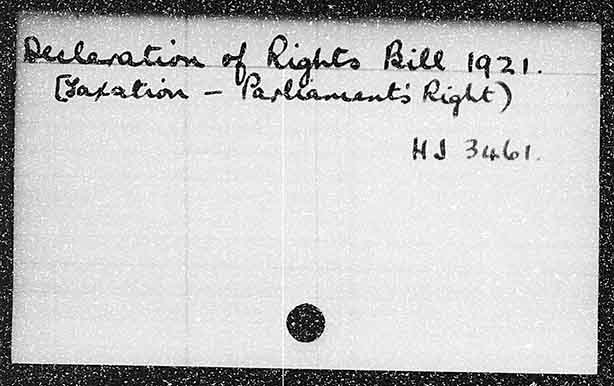 Declaration of Rights Bill 1921.
(Taxation - Parliament's Right)
HJ 3461.